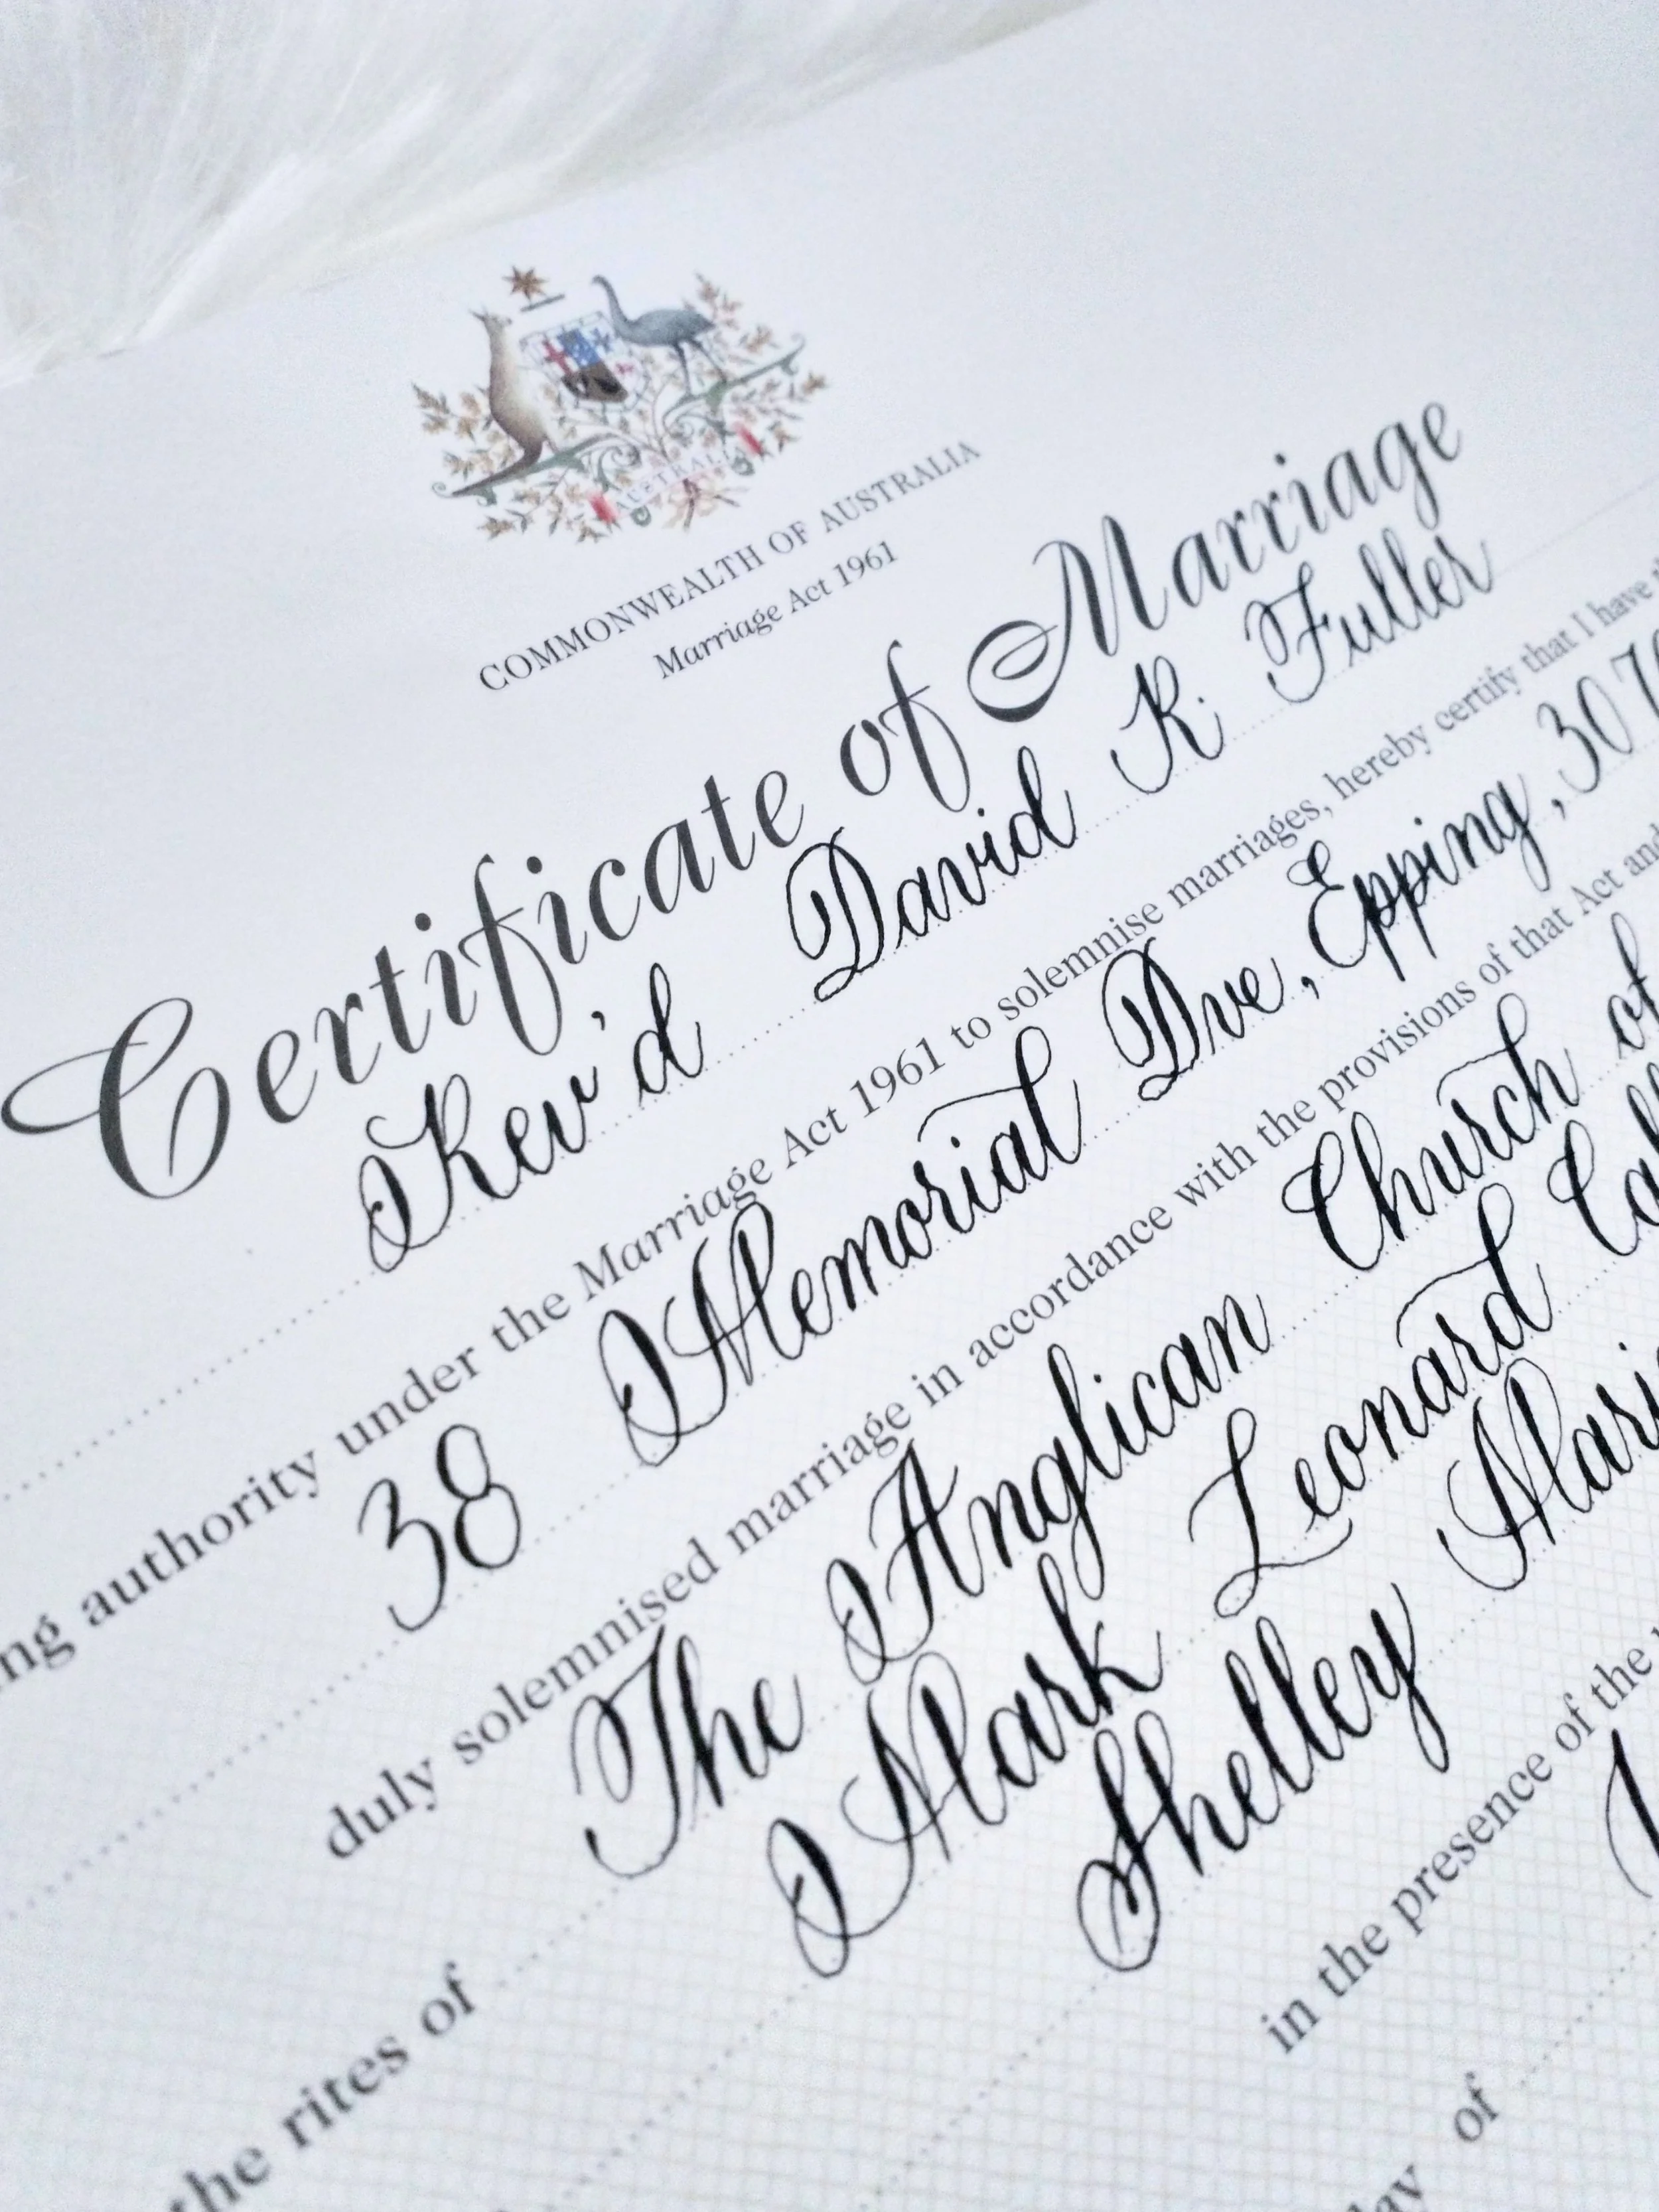 AUSTRALIA
COMMONWEALTH OF AUSTRALIA
Marriage Act 1961
Certificate of Marriage
Rev'd David K. Fuller
ng authority under the Marriage Act 1961 to solemnise marriages, hereby certify that I have
38 Memorial Dve, Epping, 307
duly solemnised marriage in accordance with the provisions of that Act and
the rites of The Anglican Church of
Mark Leonard Cal
Shelley Mari
in the presence of the
day of